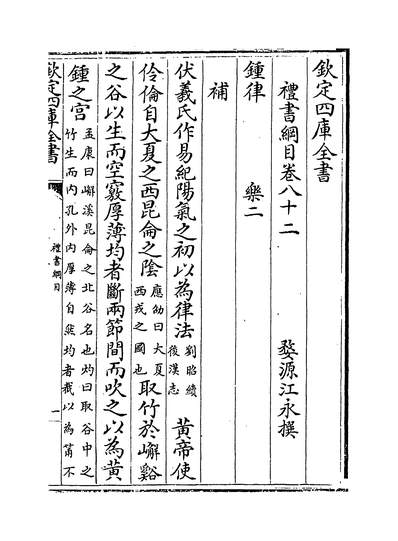 欽定四庫全書
禮書綱目卷八十二
婺源江永撰
鍾律 樂二
補
伏羲氏作易紀陽氣之初以為律法劉昭續後漢志 黃帝使
伶倫自大夏之西昆侖之陰應劭曰大夏西戎之國也取竹於嶰谿
之谷以生而空竅厚薄均者斷兩節間而吹之以為黃
鍾之宮孟康曰嶰溪昆侖之北谷名也灼曰取谷中之竹生而內孔外內厚薄自然均者截以為筩不
欽定四庫全書
禮書綱目
一